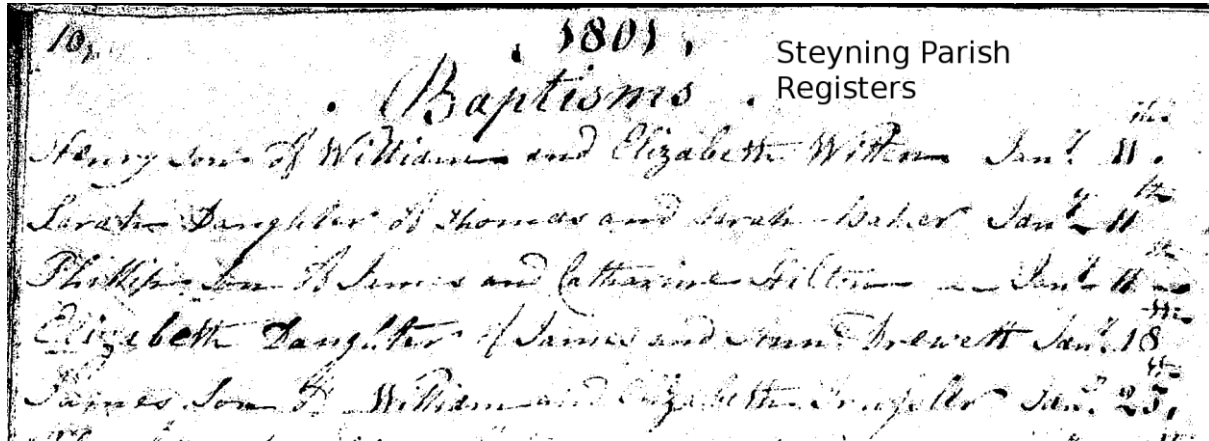 10,
. 1801 .
Steyning Parish
Registers
. Baptisms .
Henry son of William and Elizabeth Witten Janʸ 11th.
Sarah Daughter of Thomas and Sarah Baker Janʸ 11th
Phillip Son of James and Catharine Hilton Janʸ 11th
Elizabeth Daughter of James and Ann Drewett Janʸ 18th
James Son of William and Elizabeth Janʸ 25th,